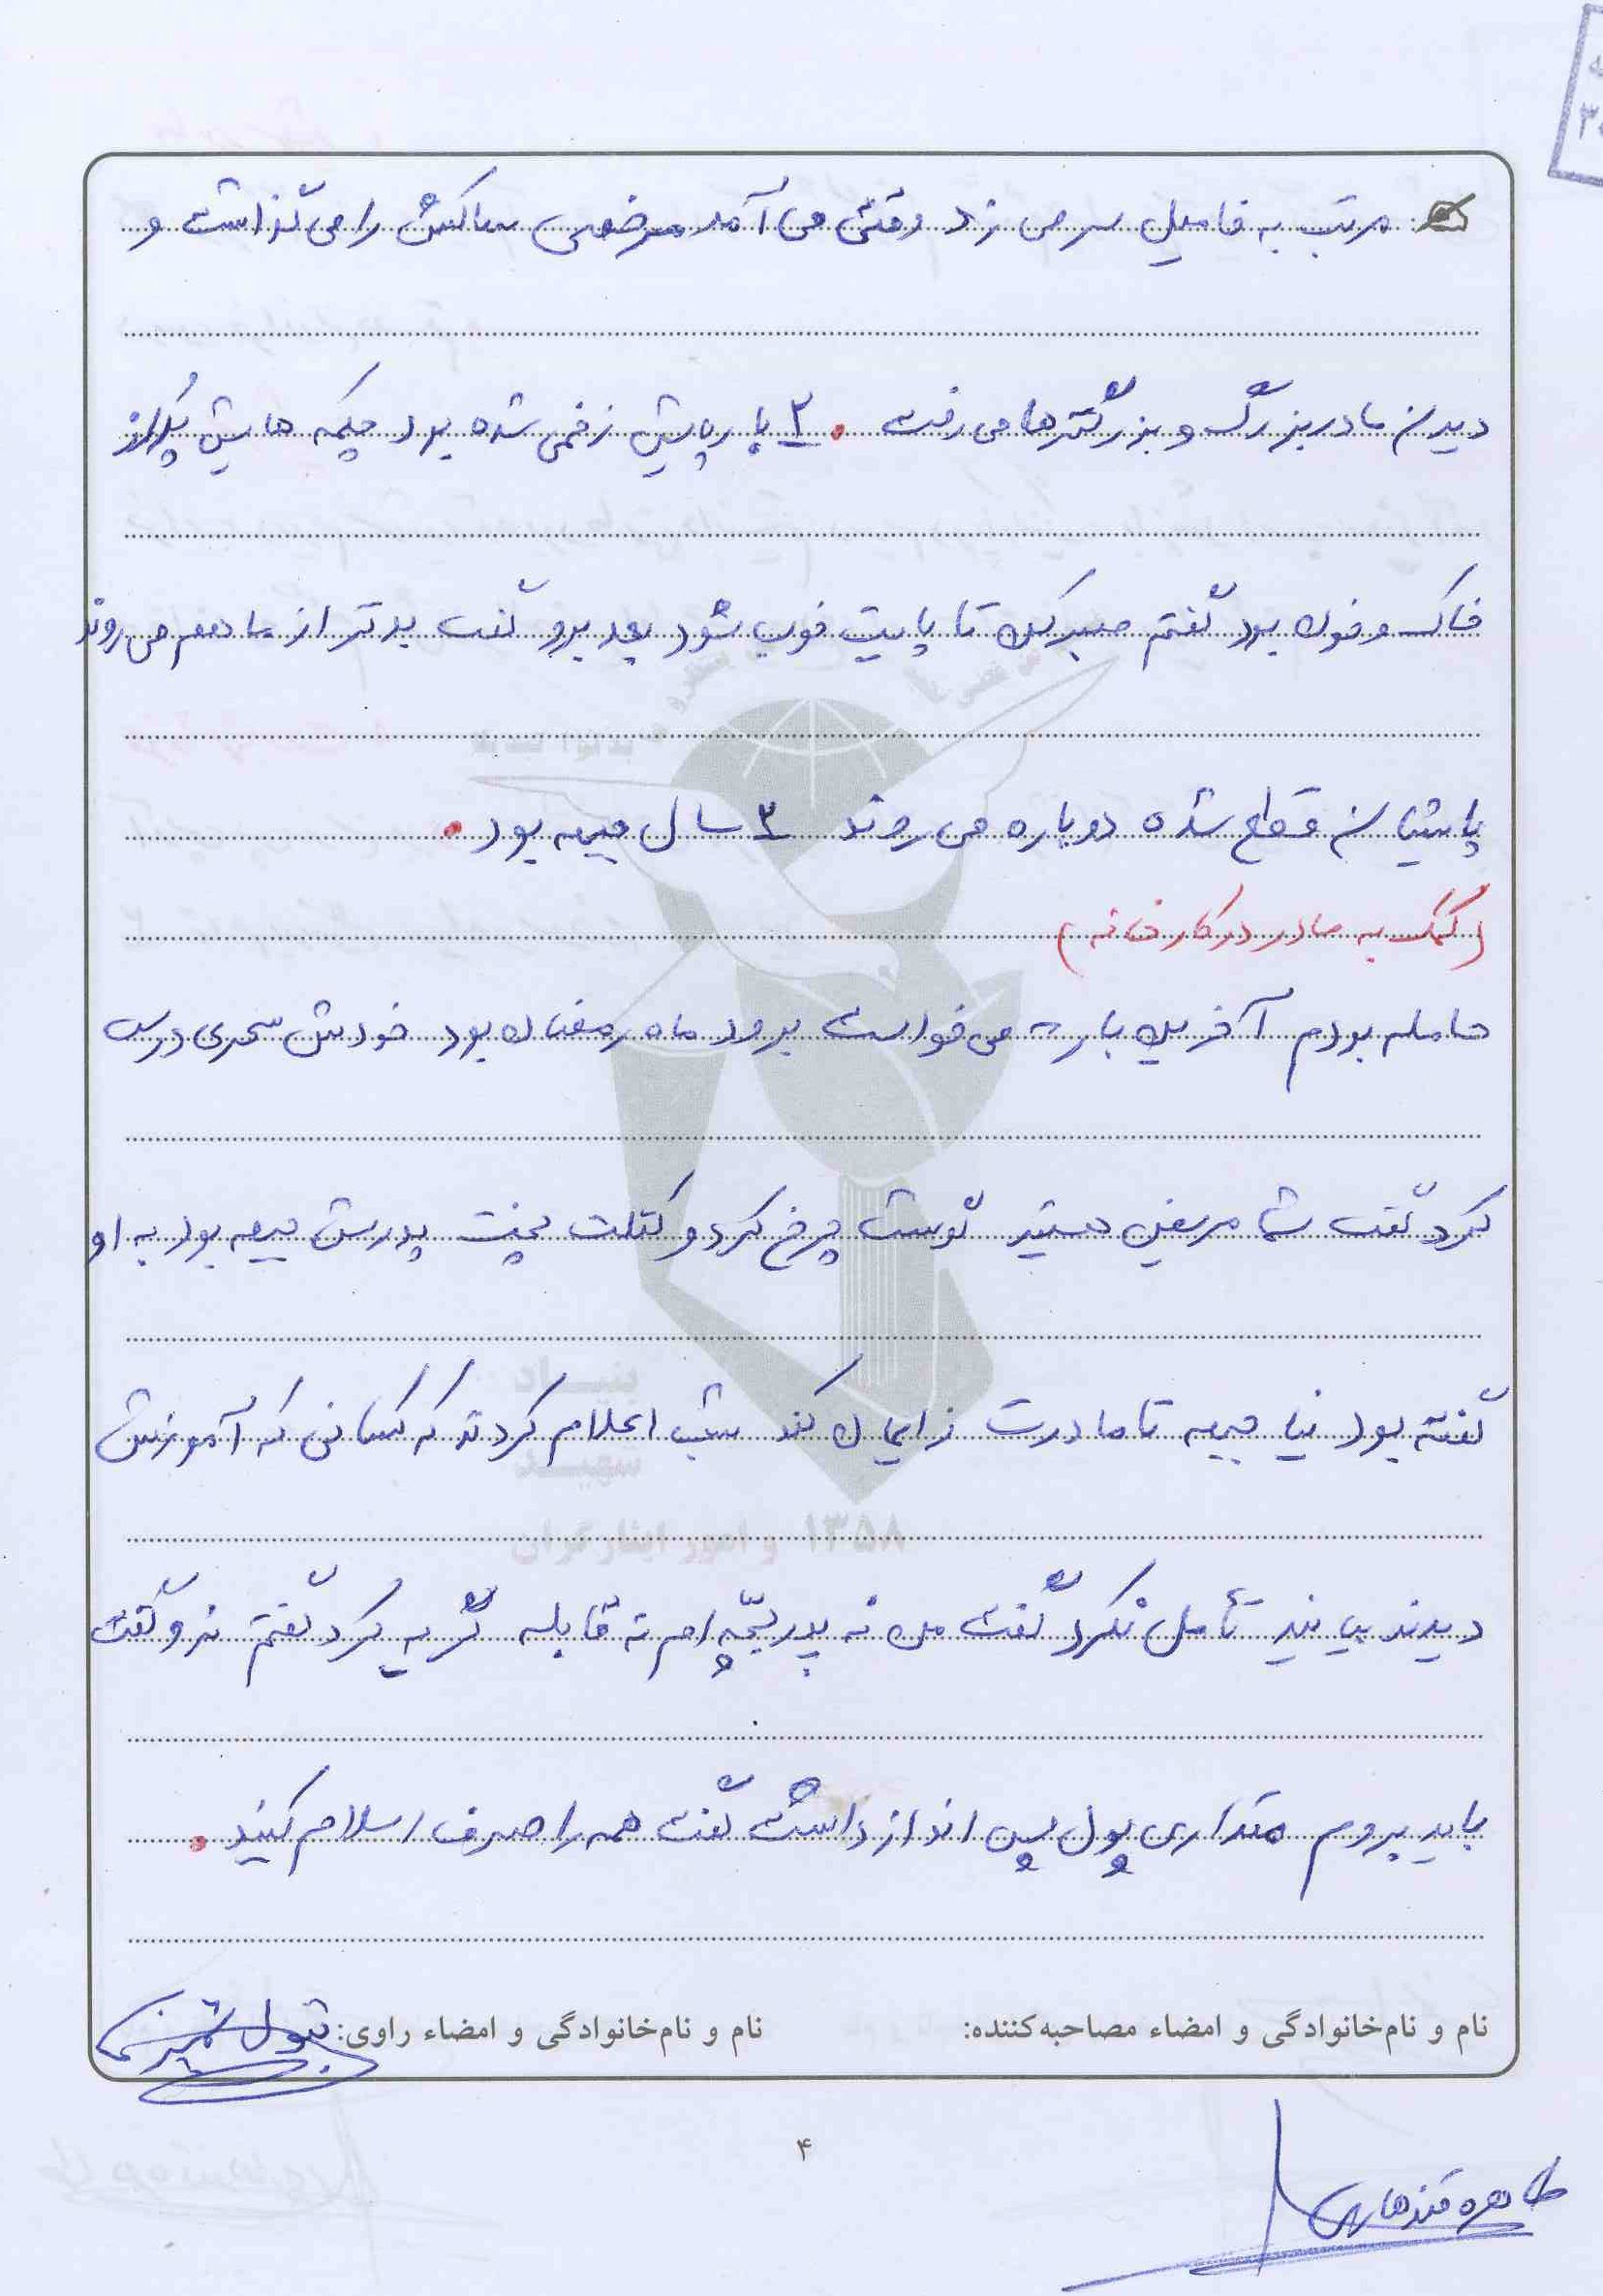 مرتب به فامیل سر می زد وقتی می آمد مرخصی ساکش را می گذاشت و
دیدن مادربزرگ و بزرگترها می رفت . ۳ بار پایش زخمی شده بود چکمه هایش پر از
خاک و خون بود گفتم صبر کن تا پایت خوب شود بعد برو گفت بدتر از ما هم می روند
پایشان قطع شده دوباره می روند ۳ سال جبهه بود .
(کمک به مادر در کار خانه)
حامله بودم آخرین بار که می خواست برود ماه رمضان بود خودش سحری درست
کرد گفت شما مریض هستید گوشت چرخ کرد و کتلت پخت پدرش جبهه بود به او
گفته بود نیا جبهه تا مادرت زایمان کند شب اعلام کردند که کسانی که آموزش
دیدند بیایند تأمل نکرد گفت من نه پدر بچه ام نه قابله گریه کرد گفتم نرو گفت
باید بروم مقداری پول پس انداز داشت گفت همه را صرف اسلام کنید .
نام و نام‌خانوادگی و امضاء مصاحبه‌کننده: نام و نام‌خانوادگی و امضاء راوی: بتول
۴
طاهره قندهاری
بنیاد
شهید
۱۳۵۸ و امور ایثارگران